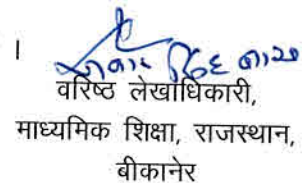 ।
वरिष्ठ लेखाधिकारी,
माध्यमिक शिक्षा, राजस्थान,
बीकानेर